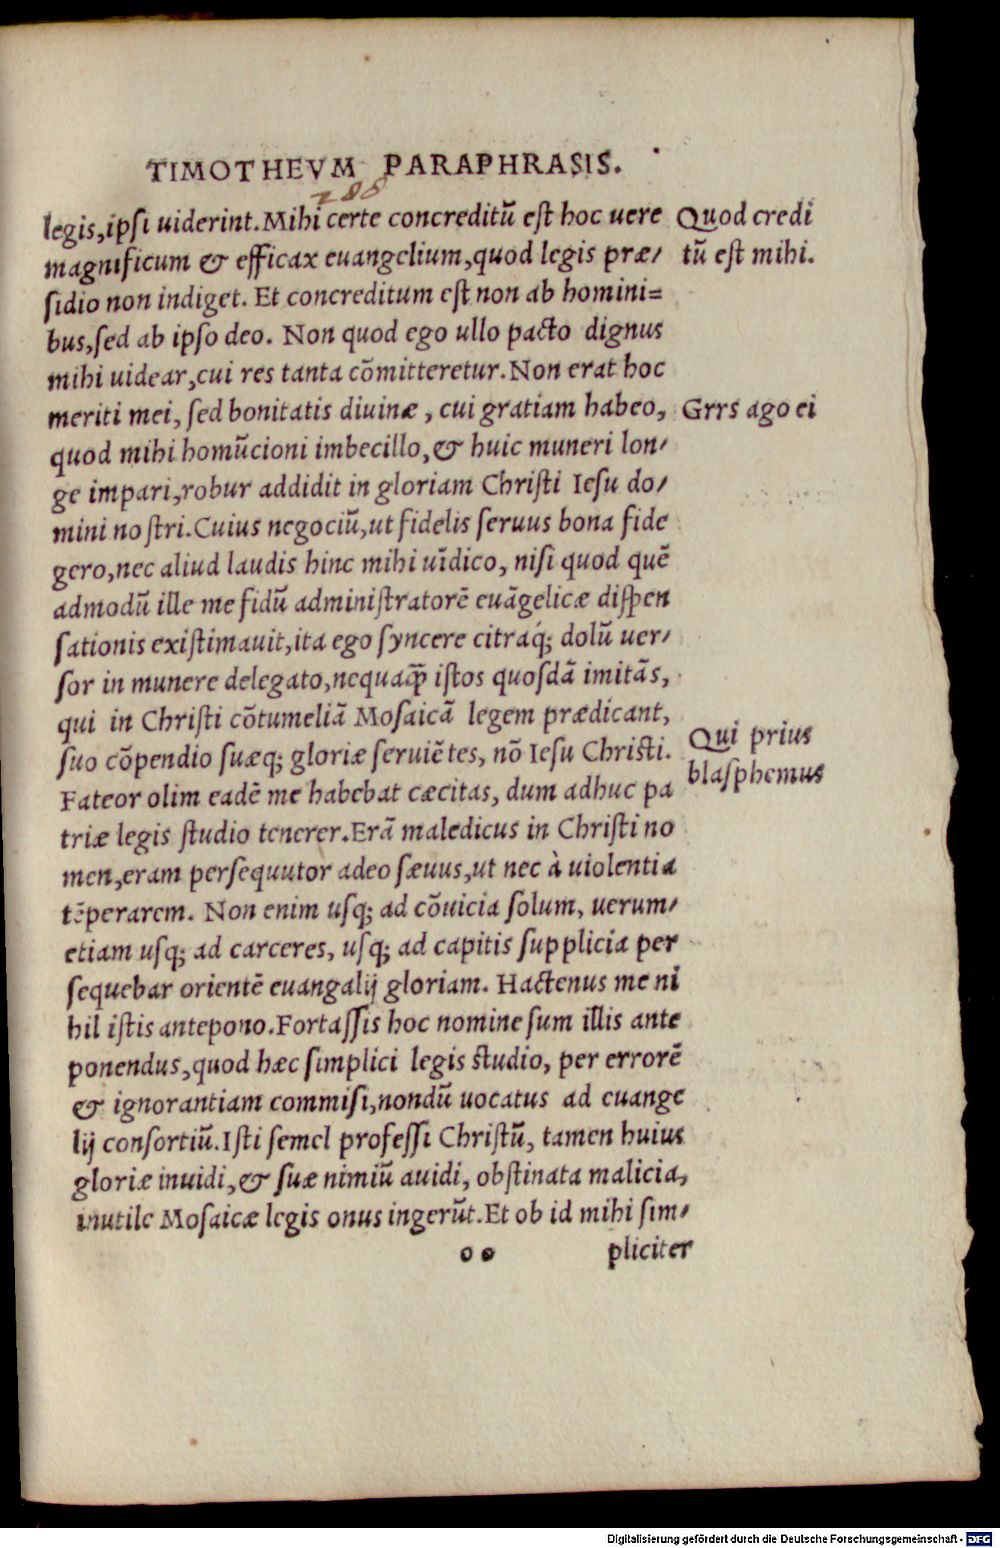 TIMOTHEVM PARAPHRASIS.
288
legis,ipsi uiderint.Mihi certe concreditũ est hoc uere
Quod credi
magnificum & efficax euangelium,quod legis præ/
tũ est mihi.
sidio non indiget. Et concreditum est non ab homini=
bus,sed ab ipso deo. Non quod ego ullo pacto dignus
mihi uidear,cui res tanta cõmitteretur.Non erat hoc
meriti mei, sed bonitatis diuinæ, cui gratiam habeo,
Grrs ago ei
quod mihi homũcioni imbecillo,& huic muneri lon/
ge impari,robur addidit in gloriam Christi Iesu do/
mini nostri.Cuius negociũ,ut fidelis seruus bona fide
gero,nec aliud laudis hinc mihi uĩdico, nisi quod quẽ
admodũ ille me fidũ administratorẽ euãgelicæ dispen
sationis existimauit,ita ego syncere citraq́; dolũ uer/
sor in munere delegato,nequaq̃ istos quosdã imitãs,
qui in Christi cõtumeliã Mosaicã legem prædicant,
suo cõpendio suæq; gloriæ seruiẽtes, nõ Iesu Christi.
Qui prius
Fateor olim eadẽ me habebat cæcitas, dum adhuc pa
blasphemus
triæ legis studio tenerer.Erã maledicus in Christi no
men,eram persequutor adeo sæuus,ut nec à uiolentia
tẽperarem. Non enim usq; ad cõuicia solum, uerum/
etiam usq; ad carceres, usq; ad capitis supplicia per
sequebar orientẽ euangalij gloriam. Hactenus me ni
hil istis antepono.Fortassis hoc nomine sum illis ante
ponendus,quod hæc simplici legis studio, per errorẽ
& ignorantiam commisi,nondũ uocatus ad euange
lij consortiũ.Isti semel professi Christũ, tamen huius
gloriæ inuidi,& suæ nimiũ auidi, obstinata malicia,
inutile Mosaicæ legis onus ingerũt.Et ob id mihi sim/
oo pliciter
Digitalisierung gefördert durch die Deutsche Forschungsgemeinschaft - DFG